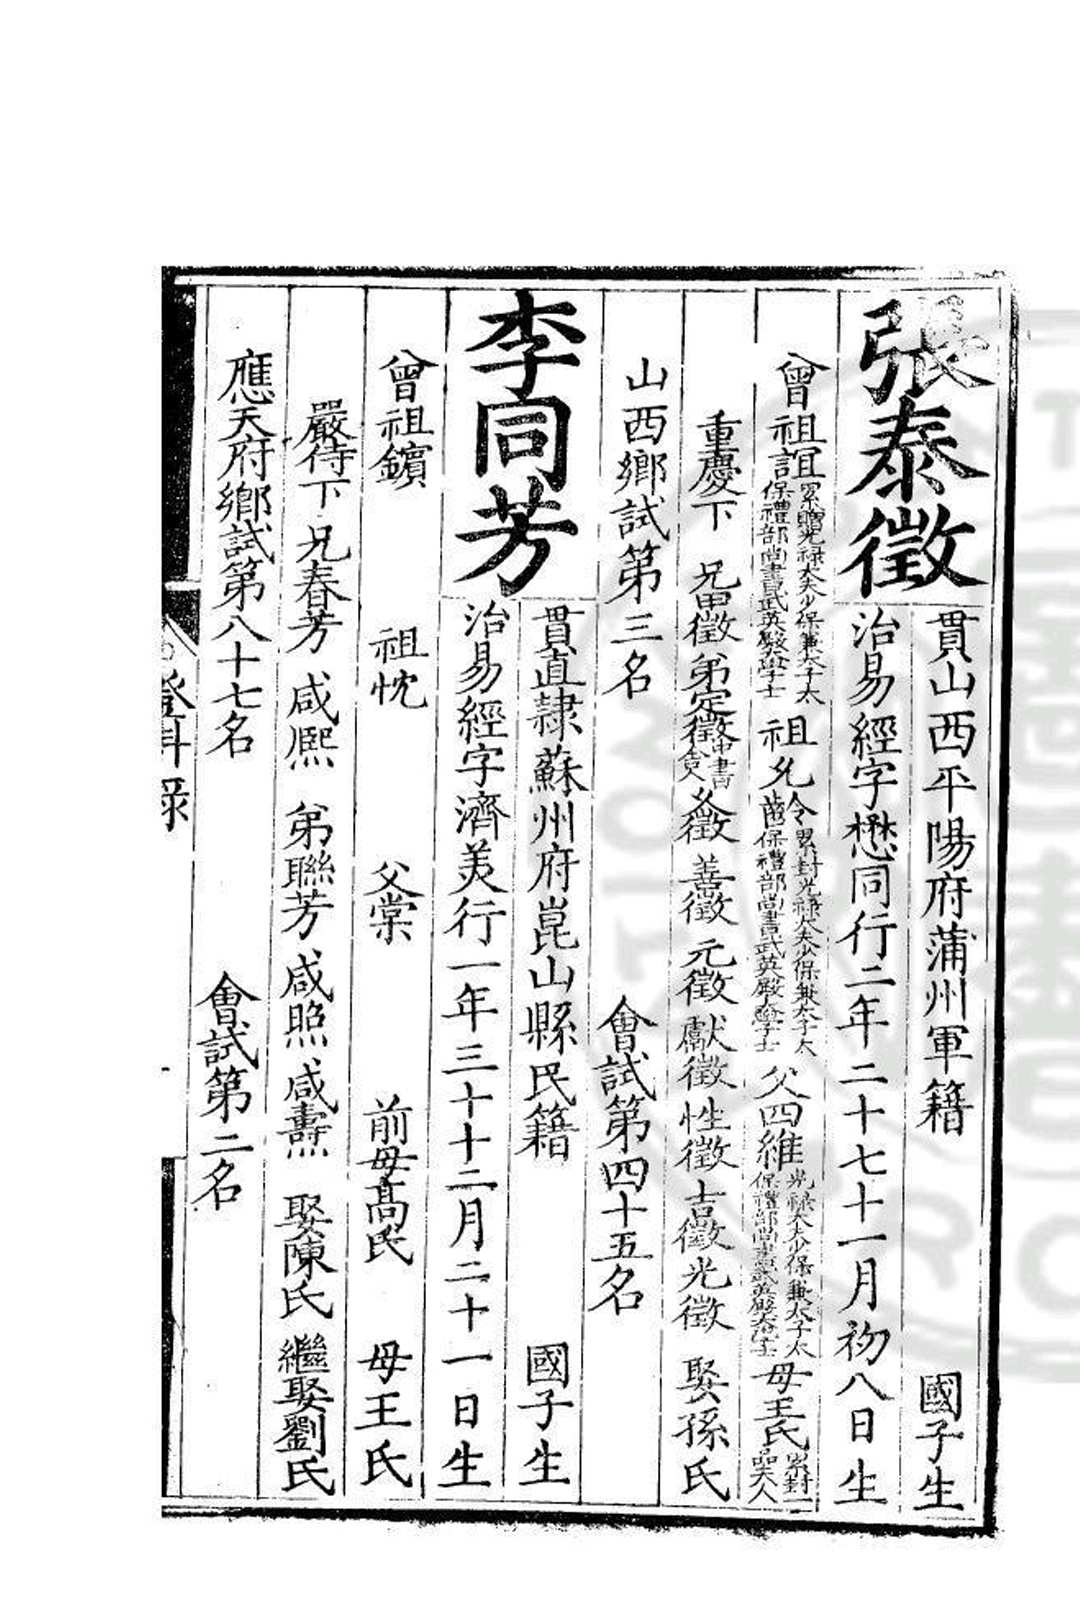 張泰徵
貫山西平陽府蒲州軍籍 國子生
治易經字懋同行二年二十七十一月初八日生
曾祖誼累贈光祿大夫少保兼太子太保禮部尚書武英殿大學士 祖允齡累封光祿大夫少保兼太子太保禮部尚書武英殿大學士 父四維光祿大夫少保兼太子太保禮部尚書武英殿大學士 母王氏累封一品夫人
重慶下 兄甲徵 弟定徵中書 徵 善徵 元徵 獻徵 性徵 吉徵 光徵 娶孫氏
山西鄉試第三名 會試第四十五名
李同芳
貫直隸蘇州府崑山縣民籍 國子生
治易經字濟美行一年三十十二月二十一日生
曾祖鑌 祖忱 父棠 前母高氏 母王氏
嚴侍下 兄春芳 咸熙 弟聯芳 咸照 咸燾 娶陳氏 繼娶劉氏
應天府鄉試第八十七名 會試第二名
登科錄